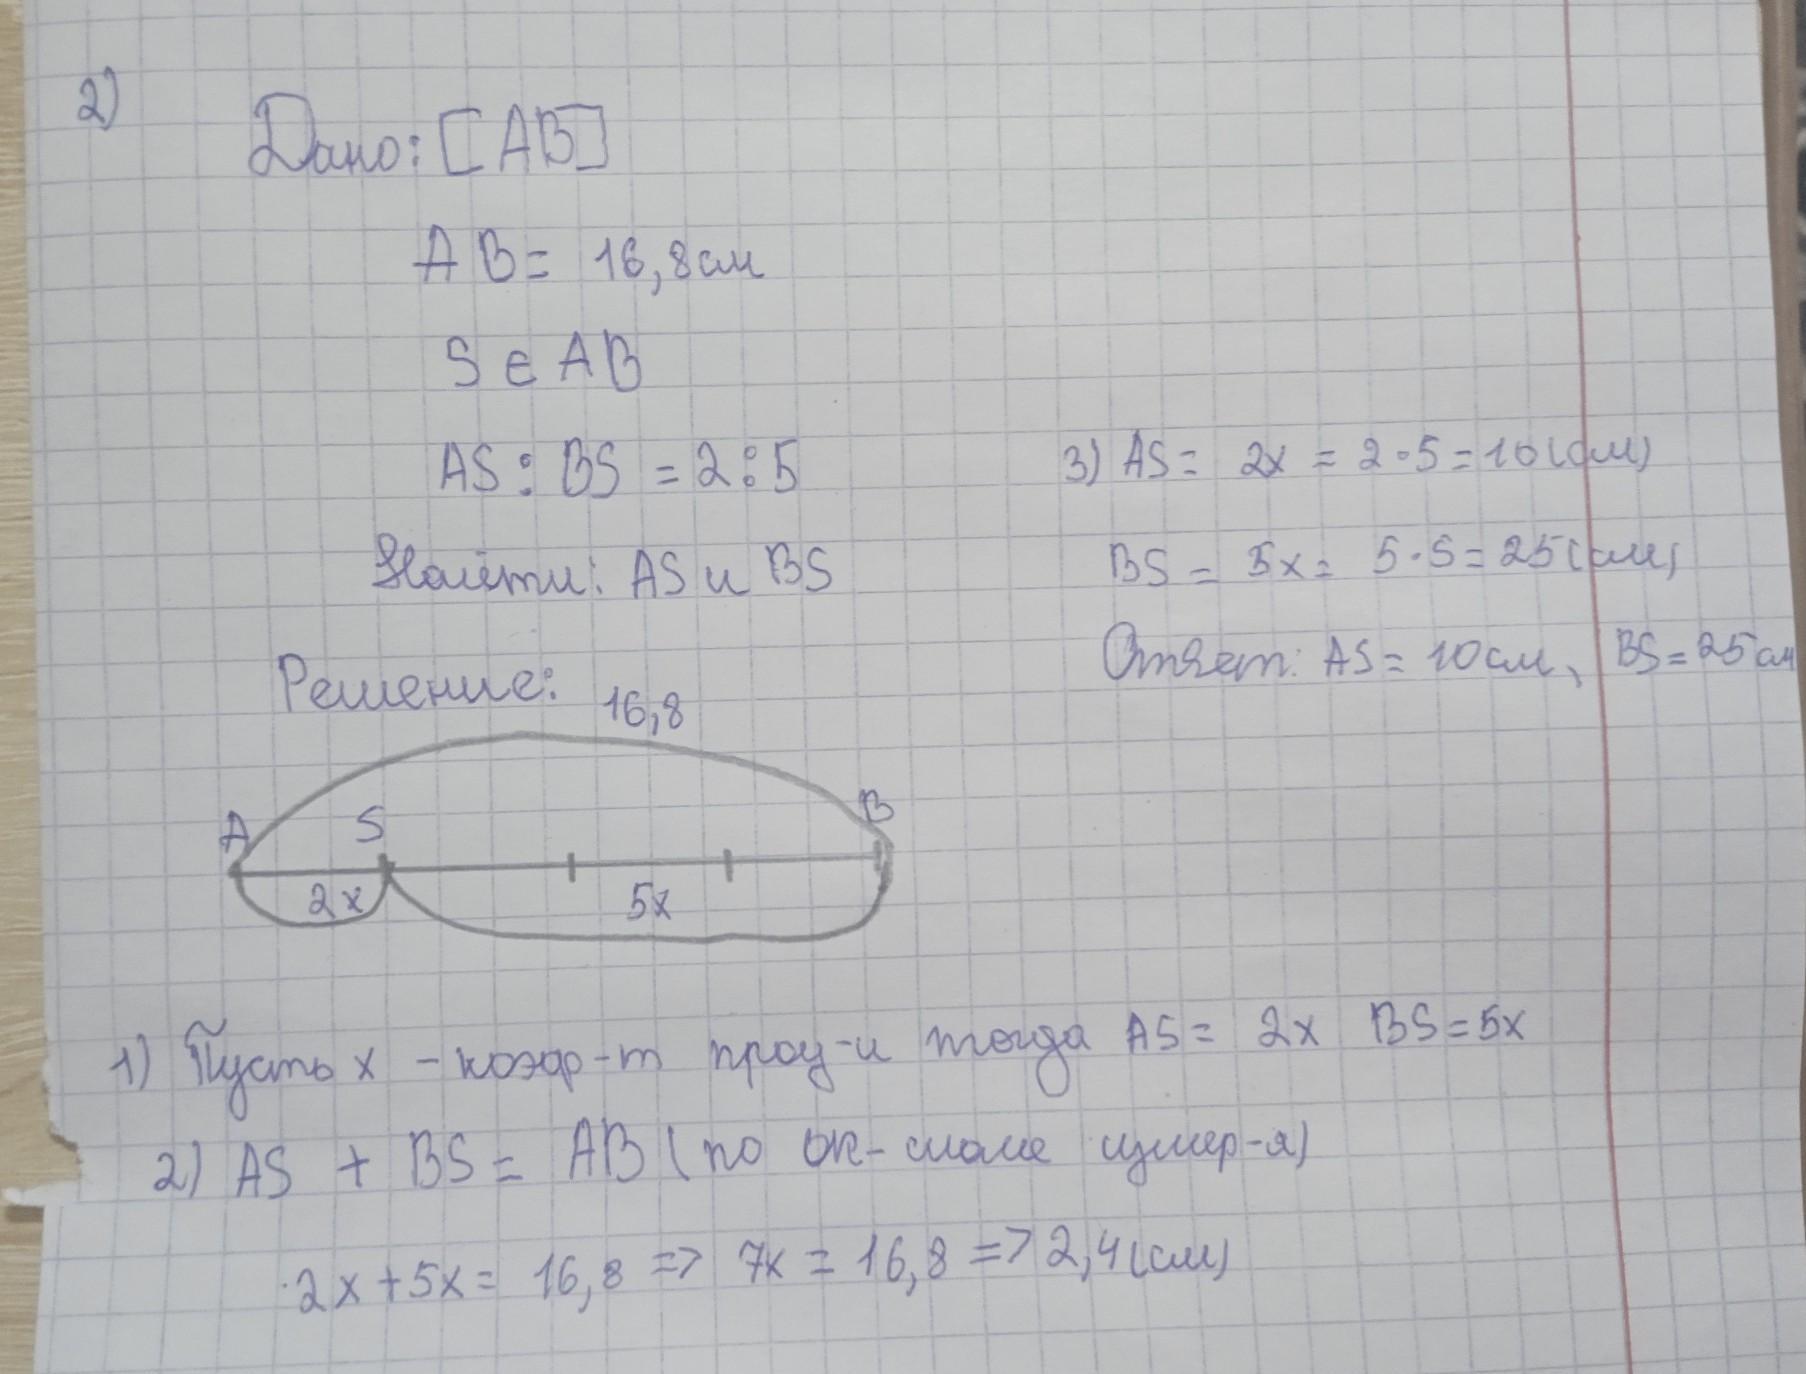 2)
Дано: [AB]
AB = 16,8см
S ∈ AB
AS : BS = 2 : 5
Найти: AS и BS
Решение:
16,8
A S B
2x 5x
1) Пусть x - коэф-т проц-и тогда AS = 2x BS = 5x
2) AS + BS = AB (по ак-сиоме измер-я)
2x + 5x = 16,8 => 7x = 16,8 => 2,4(см)
3) AS = 2x = 2·5 = 10(см)
BS = 5x = 5·5 = 25(см)
Ответ: AS = 10см, BS = 25см